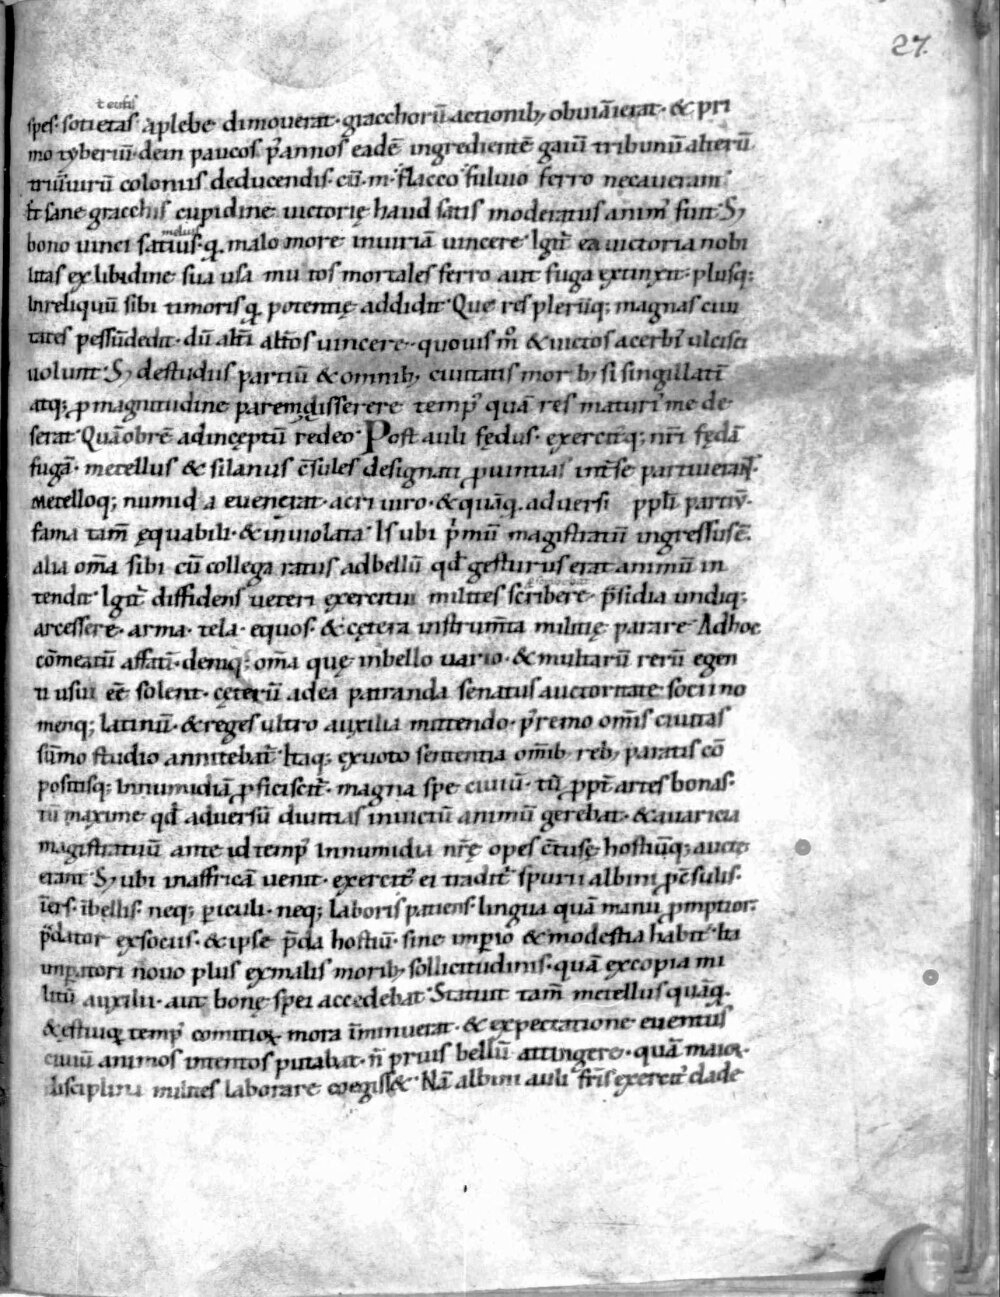 27.
spes· sotietas aplebe dimouerat· gracchorū actionib; obuiā ierat· & pri
mo tyberiū· dein paucos p̄ annos eadē ingredientē gaiū tribunū alterū
triūuirū coloniis deducendis· cū· m· flacco fuluio ferro necauerant·
Et sane gracchis cupidine uictorię haud satis moderatus anim' fuit· S;
melius
bono uinci satius· q̄ malo more iniuriā uincere· Igit̄ ea uictoria nobi
litas ex libidine sua usa mu tos mortales ferro aut fuga extinxit· plusq;
In reliquū sibi timoris q̄ potentię addidit· Que res pleriq; magnas ciui
tates pessūdedit· dū alt̄i alt̄os uincere· quouis m̊ & uictos acerbi' ulcisci
uolunt· S; destudiis partiū & omnib; ciuitatis mor b; si singillatī
atq; ꝓ magnitudine parem disserere temp' quā res maturi' me de
serat· Quāobrē adincęptū redeo· Post auli fędus· exercitq; nr̄i fędā
fugā· metellus & silanus c̄sules designati ꝓuintias int̄ se partiuerant·
Metelloq; numid a euenerat· acri uiro· & quāq̄ aduersi ppl̄i partiū·
fama tam̄ ęquabili· & inuiolata· Is ubi p̄mū magistratū ingressus ē·
alia om̄a sibi cū collega ratus adbellū qd̄ gesturus erat animū in
tendit· Igit̄ diffidens ueteri exercitui milites scribere· p̄sidia undiq;
arcessere· arma· tela· equos· & cętera instrum̄ta militię parare· Adhoc
cōmeatū affatī· deniq; om̄a quę inbello uario· & multarū rerū egen
ti usui eē solent· cęterū adea patranda senatus auctoritate· socii no
menq; latinū· & reges ultro auxilia mittendo· p̄remo om̄is ciuitas
sūmo studio annitebat̄· Itaq; exuoto sententia om̄ib; reb; paratis cō
positisq; Innumidiā ꝓficiscit̄· magna spe ciuiū· tū ꝓpt̄ artes bonas·
tū maxime qd̄ aduersū diuitias inuictū animū gerebat· & auaricia
magistratuū ante id temp' Innumidia nr̄ę opes c̄tusę hostiūq; auctę
erant· S; ubi inaffricā uenit· exercit' ei tradit' spurii albini ꝓc̄sulis·
īers· ībellis· neq; ꝑiculi· neq; laboris patiens· lingua quā manu ꝓmptior·
p̄dator exsociis· & ipse p̄da hostiū· sine imꝑio & modestia habit'· Ita
imꝑatori nouo plus exmalis morib; sollicitudinis· quā excopia mi
litū auxilii· aut bonę spei accedebat· Statuit tam̄ metellus quāq̄
& ęstiuoꝝ temp' comitioꝝ mora īminuerat· & expectatione euentus
ciuiū animos intentos putabat· n̄ prius bellū attingere· quā maioꝝ
disciplina milites laborare coegiss&· Nā albini auli fr̄is exercit' clade